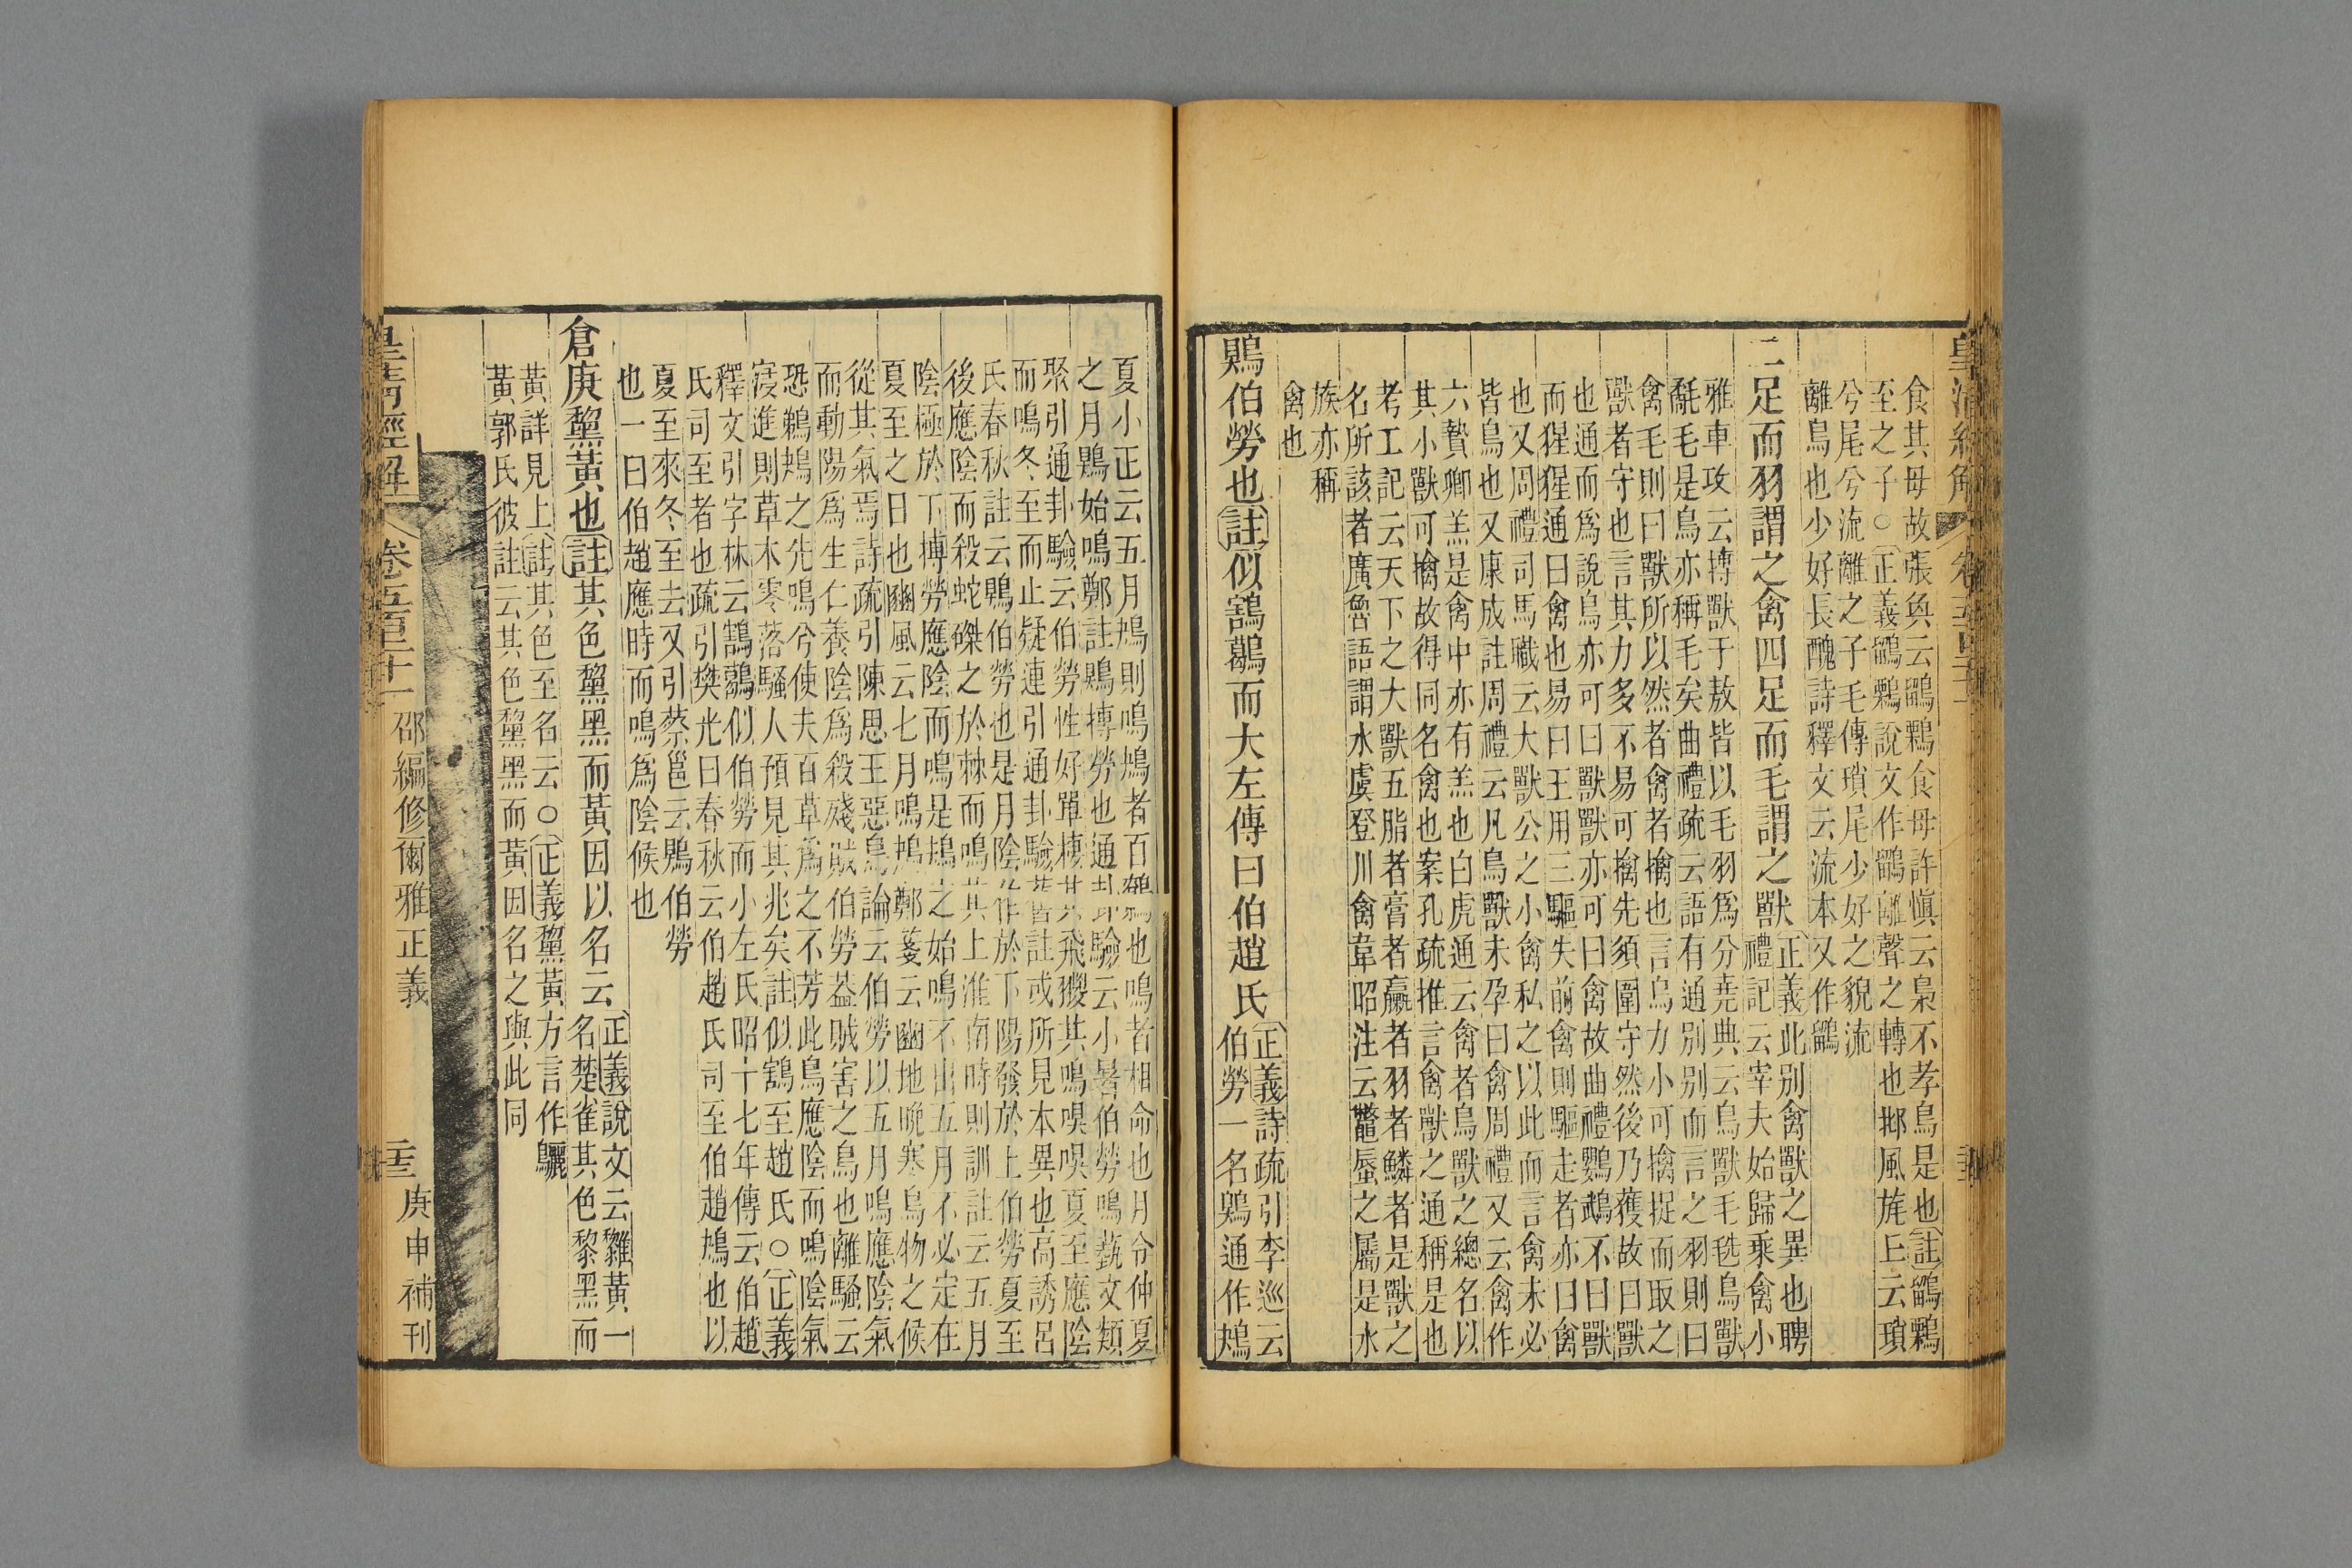 食其母故張奐云鶹鷅食母許愼云梟不孝鳥是也註鶹鷅
至之子○正義鶹鷅說文作鶹離聲之轉也邶風旄丘云瑣
兮尾兮流離之子毛傳瑣尾少好之貌流
離鳥也少好長醜詩釋文云流本又作鶹
二足而羽謂之禽四足而毛謂之獸
正義此別禽獸之異也聘
禮記云宰夫始歸乘禽小
雅車攻云搏獸于敖皆以毛羽爲分堯典云鳥獸毛毨鳥獸
氄毛是鳥亦稱毛矣曲禮疏云語有通別別而言之羽則曰
禽毛則曰獸所以然者禽者擒也言鳥力小可擒捉而取之
獸者守也言其力多不易可擒先須圍守然後乃獲故曰獸
也通而爲說鳥亦可曰獸獸亦可曰禽故曲禮鸚鵡不曰獸
而猩猩通曰禽也易曰王用三驅失前禽則驅走者亦曰禽
也又周禮司馬職云大獸公之小禽私之以此而言禽未必
皆鳥也又康成註周禮云凡鳥獸未孕曰禽周禮又云禽作
六贄卿羔是禽中亦有羔也白虎通云禽者鳥獸之總名以
其小獸可擒故得同名禽也案孔疏推言禽獸之通稱是也
考工記云天下之大獸五脂者膏者臝者羽者鱗者是獸之
名所該者廣魯語謂水虞登川禽韋昭注云鼈蜃之屬是水
族亦稱
禽也
鶪伯勞也註似鶷鶡而大左傳曰伯趙氏
正義詩疏引李巡云
伯勞一名鶪通作鴂
夏小正云五月鴂則鳴鴂者百鷯也鳴者相命也月令仲夏
之月鶪始鳴鄭註鶪搏勞也通卦驗云小暑伯勞鳴藝文類
聚引通卦驗云伯勞性好單棲其飛翪其鳴嗅嗅夏至應陰
而鳴冬至而止疑連引通卦驗舊註或所見本異也高誘呂
氏春秋註云鶪伯勞也是月陰作於下陽發於上伯勞夏至
後應陰而殺蛇磔之於棘而鳴其上淮南時則訓註云五月
陰極於下搏勞應陰而鳴是鴂之始鳴不出五月不必定在
夏至之日也豳風云七月鳴鴂鄭箋云豳地晚寒鳥物之候
從其氣焉詩疏引陳思王惡鳥論云伯勞以五月鳴應陰氣
而動陽爲生仁養陰爲殺殘賊伯勞葢賊害之鳥也離騷云
恐鵜鴂之先鳴兮使夫百草爲之不芳此鳥應陰而鳴陰氣
寖進則草木零落騷人預見其兆矣註似鶷至趙氏○正義
釋文引字林云鶷鶡似伯勞而小左氏昭十七年傳云伯趙
氏司至者也疏引樊光曰春秋云伯趙氏司至伯趙鴂也以
夏至來冬至去又引蔡邕云鶪伯勞
也一曰伯趙應時而鳴爲陰候也
倉庚黧黃也註其色黧黑而黃因以名云
正義說文云雞黃一
名楚雀其色黎黑而
黃詳見上註其色至名云○正義黧黃方言作鸝
黃郭氏彼註云其色黧黑而黃因名之與此同
皇淸經解
卷五百二十一
邵編修爾雅正義
二十三
庚申補刊